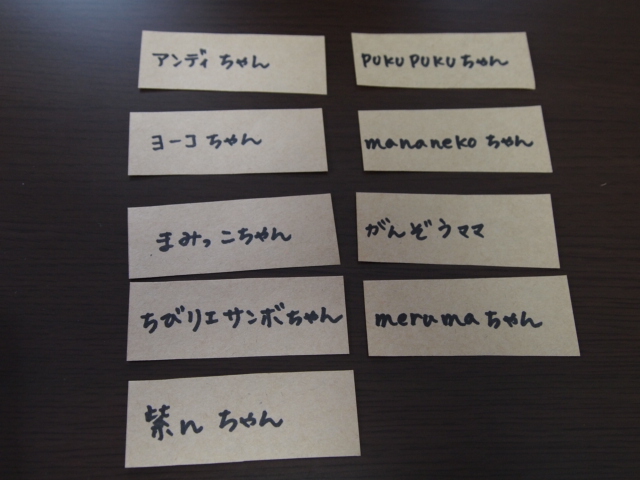 アンディちゃん
PUKUPUKUちゃん
ヨーコちゃん
mananekoちゃん
まみっこちゃん
がんぞうママ
ちびリエサンボちゃん
merumaちゃん
紫nちゃん